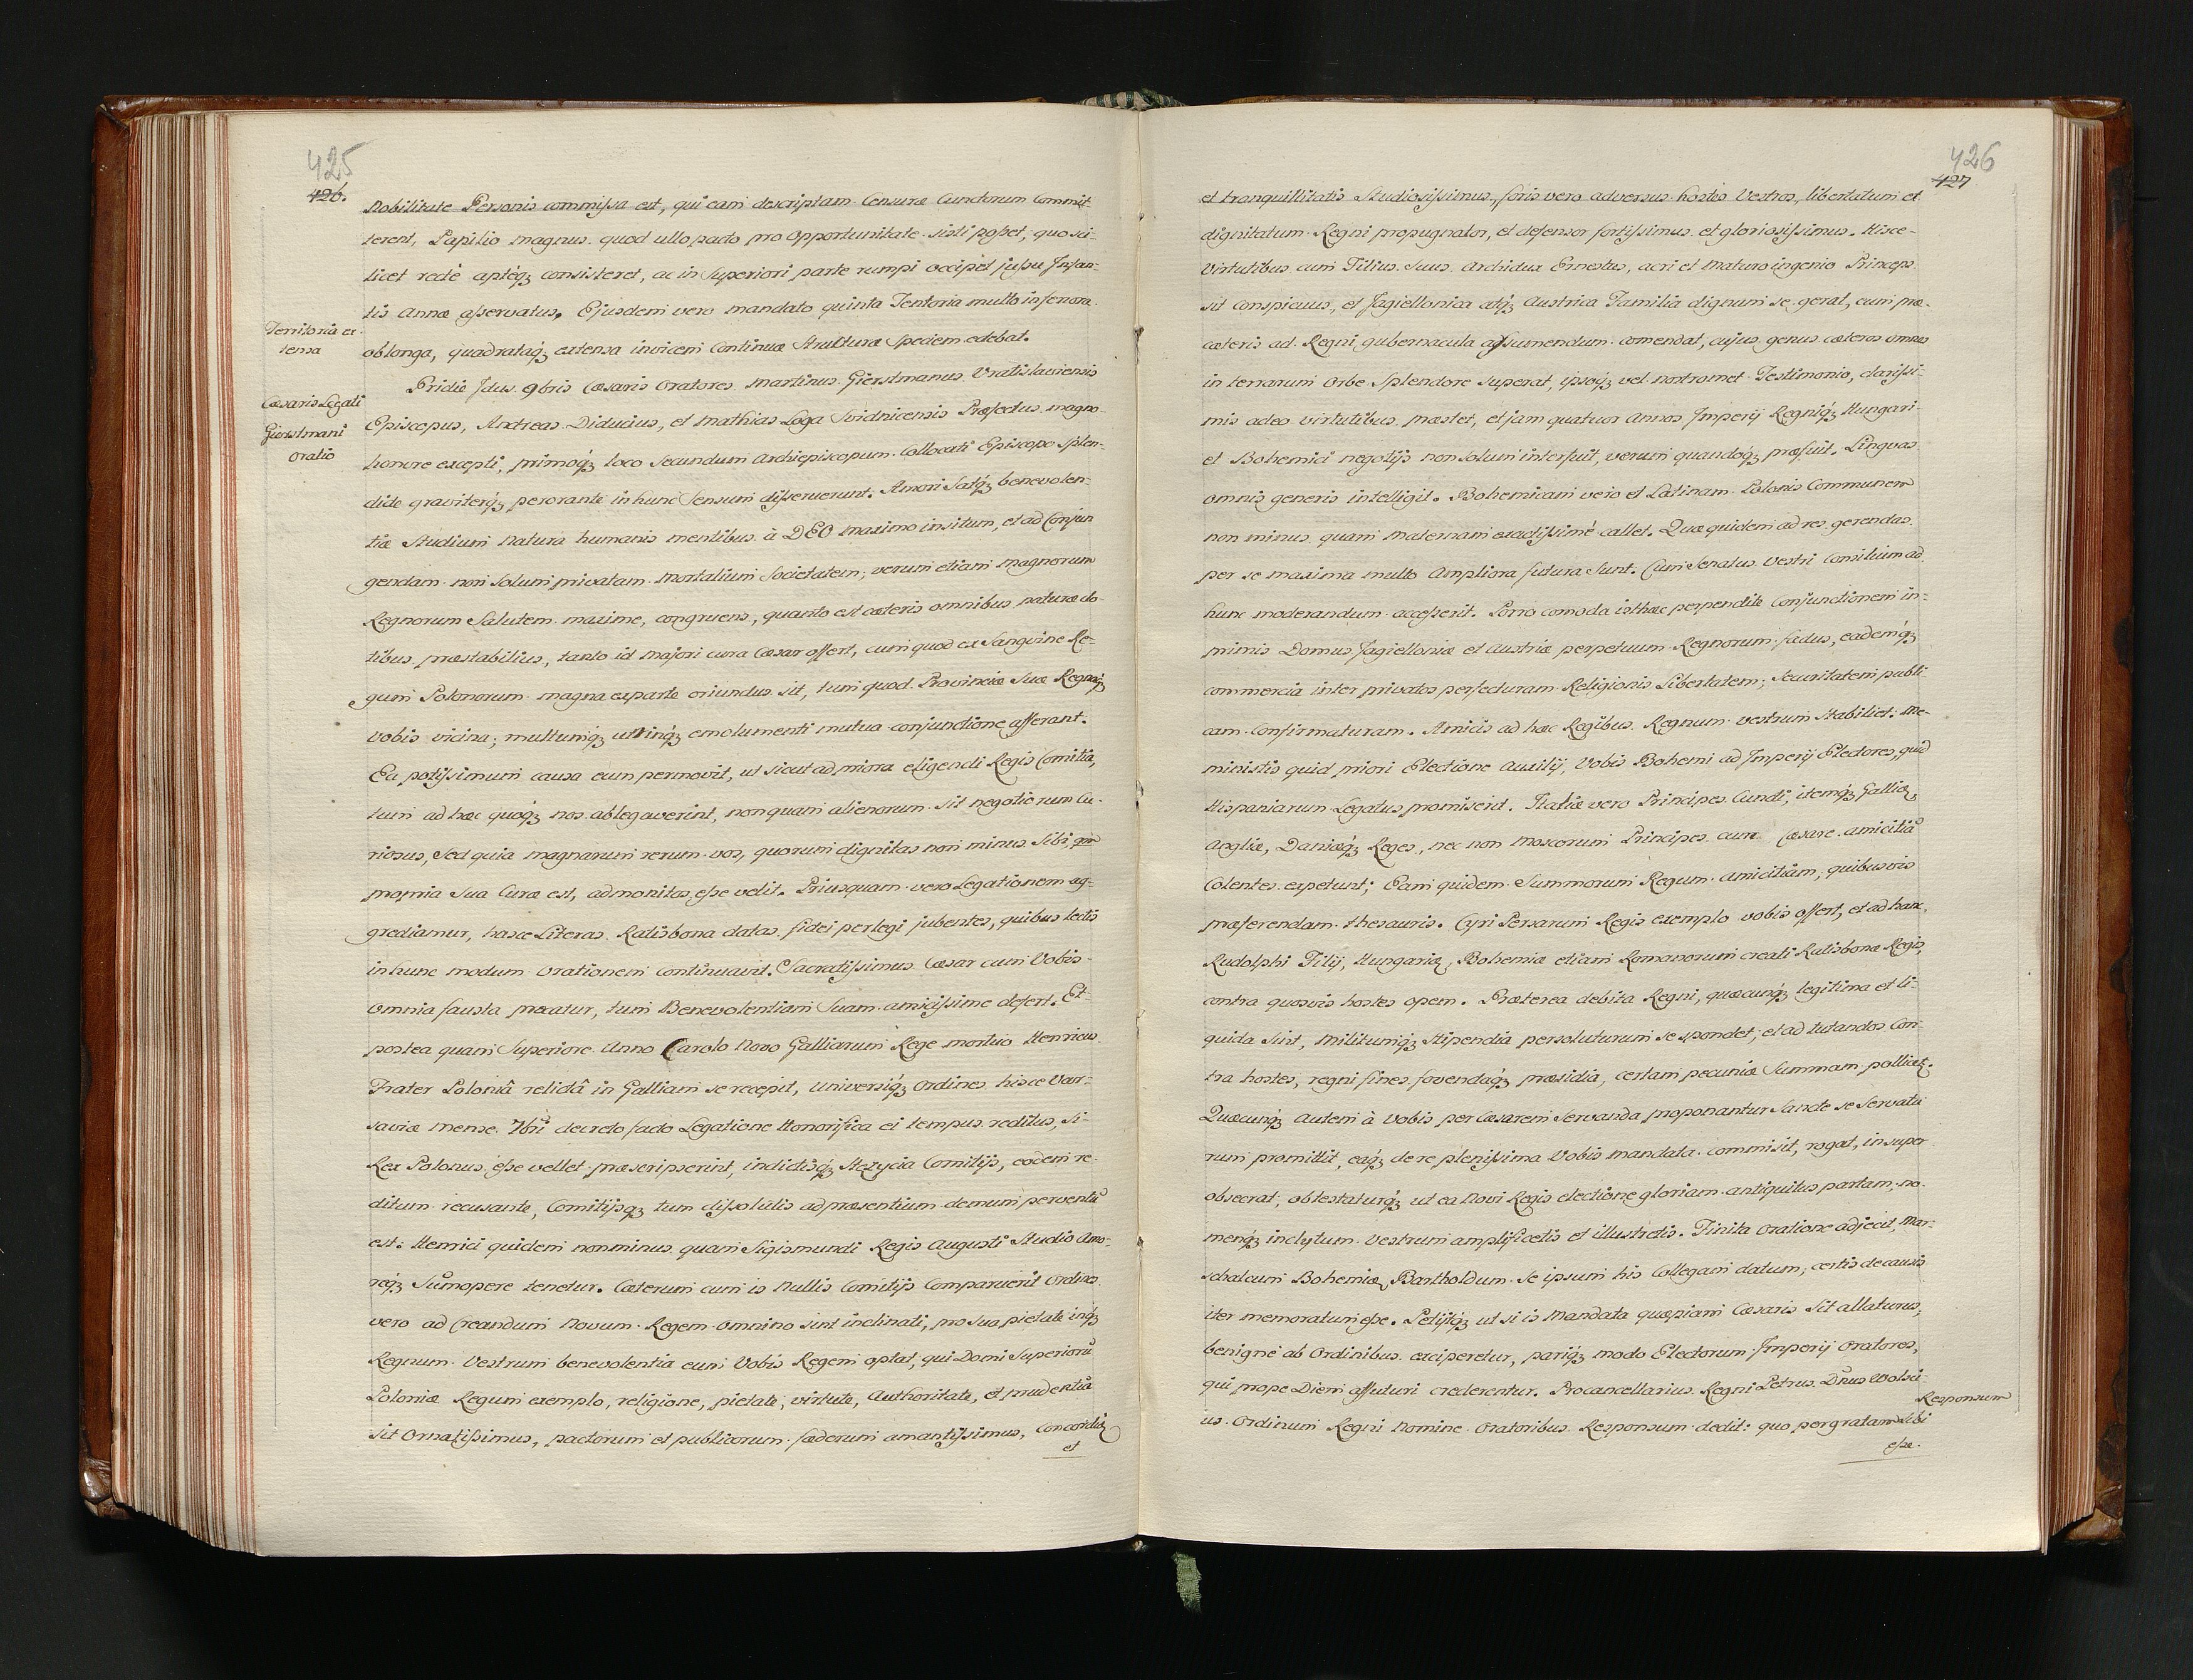 425
426.
Nobilitate Personis commissa est, qui eam descriptam Censuræ Cunctorum Commit
terent, Papilio magnus quod ullo pacto pro Opportunitate sisti posset, quo sci-
licet rectè aptéqz consisteret, ac in Superiori parte rumpi occipet jussu Infan-
tis Annæ asservatus. Ejusdem vero mandato quinta Tentoria multo inferiora
Territoria ex-
tensa
oblonga, quadrataqz extensa invicem Continuæ Strutturæ Speciem edebat.
Pridie Idus 9bris Cæsaris Oratores Martinus Gierstmanus Vratislaviensis
Cæsaris Legati
Gierstmani
Oratio
Episcopus, Andreas Diducius, et Mathias Loga Svidnicensis Præfectus magno
honore excepti, primoqz loco Secundum Archiepiscopum Collocati Episcopo Splen-
dide graviterqz perorante in hunc Sensum disseruerunt. Amori Satqz benevolen-
tiæ Studium Natura humanis mentibus à DEO Maximo insitum, et ad Conjun
gendam non Solum privatam Mortalium Societatem; verum etiam Magnorum
Regnorum Salutem maxime, congruens, quanto est cæteris omnibus naturæ do-
tibus præstabilius, tanto id majori cura Cæsar offert, cum quod ex Sanguine Re-
gum Polonorum magna ex parte oriundus sit, tum quod Provinciæ Suæ Regnaqz
Vobis vicina; multumqz utrinqz emolumenti mutua conjunctione afferant.
Ea potissimum causa eum permovit, ut sicut ad priora eligendi Regis Comitia,
tum ad hæc quoqz nos ablegaverint, non quam alienorum sit negotiorum Cu-
riosus, Sed quia magnarum rerum vos, quorum dignitas non minus Sibi, qm
propria Sua Curæ est, admonitos esse velit. Priusquam vero Legationem ag-
grediamur, hasce Literas Ratisbona datas fidei perlegi jubentes, quibus lectis
in hunc modum Orationem continuavit. Sacratissimus Cæsar cum Vobis
Omnia fausta precatur, tum Benevolentiam Suam amicissime defert. Et
postea quam Superiore Anno Carolo Nono Galliarum Rege mortuo Henricus
Frater Poloniâ relictâ in Galliam se recepit, Universiqz Ordines hisce Var-
saviæ mense 7bri decreto facto Legatione Honorifica ei tempus reditus, Si
Rex Polonus, esse vellet præscripserint, indictisqz Stezycia Comitijs, eodem re-
ditum recusante, Comitijsqz tum dissolutis ad præsentium demum perventū
est: Henrici quidem non minus quam Sigismundi Regis Augusti Studio Amo-
reqz Sum̄opere tenetur. Cæterum cum is Nullis Comitijs Comparuerit Ordines
vero ad Creandum Novum Regem omnino sint inclinati, pro Sua pietate inqz
Regnum Vestrum benevolentia eum Vobis Regem optat, qui Domi Superiorū
Poloniæ Regum exemplo, religione, pietate, virtute, Authoritate, et prudentia
sit Ornatissimus, pactorum et publicorum fæderum amantissimus, Concordiæ
et
426
427
et tranquillitatis Studiosissimus, foris vero adversus hostes Vestros, libertatum et
dignitatum Regni propugnator, et defensor fortissimus et gloriosissimus. Hisce
Virtutibus cum Filius Suus Archidux Ernestus, acri et Maturo ingenio Princeps
sit Conspicuus, et Jagiellonica atqz Austrica Familia dignum se gerat, eum præ-
cæteris ad Regni gubernacula assumendum com̄endat, cujus genus cæteros omnes
in terrarum Orbe Splendore Superat, ipsoqz vel nostromet Testimonio, clarissi-
mis adeo virtutibus præstet, et jam quatuor Annos Imperij Regniqz Hungari-
et Bohemici negotijs non solum interfuit, verum quandoqz præfuit. Linguas
omnis generis intelligit. Bohemicam vero et Latinam Polonis Communem
non minus quam Maternam exactissimè callet. Quæ quidem ad res gerendas
per se maxima multo Ampliora futura Sunt. Cum Senatus Vestri Consilium ad
hunc moderandum accesserit. Porro com̄oda isthæc perpendite Conjunctionem in-
primis Domus Jagielloniæ et Austriæ perpetuum Regnorum fædus, eademqz
commercia inter privatos perfecturam Religionis Libertatem; Securitatem publi-
cam Confirmaturam. Amicis ad hæc Regibus Regnum vestrum Stabiliet: Me-
ministis quid priori Electione Auxilij, Vobis Bohemi ad Imperij Electores, quid
Hispaniarum Legatus promiserit. Italiæ vero Principes Cuncti, itemqz Galliæ,
Angliæ, Daniæqz Reges, nec non Moscorum Principes cum Cæsare amicitiā
Colentes expetunt; Eam quidem Summorum Regum amicitiam, quibusvis
præferendam thesauris. Cyri Persarum Regis exemplo vobis offert, et ad hanc,
Rudolphi Filij, Hungariæ, Bohemiæ etiam Romanorum creati Ratisbonæ Regis,
contra quosvis hostes opem. Præterea debita Regni, quæcunqz legitima et li-
quida Sint, Militumqz Stipendia persoluturum se spondet; et ad tutandos Con-
tra hostes, regni fines fovendaqz præsidia, certam pecuniæ Summam pollicetz.
Quæcunqz autem à vobis per Cæsarem Servanda proponantur Sancte se Servatu
rum promittit, eaqz de re plenissima Vobis mandata commisit, rogat, insuper
obsecrat, obtestaturqz ut ea Novi Regis electione gloriam antiquitus partam, no-
menqz inclytum Vestrum amplificetis et illustretis. Finita Oratione adjecit, Mar-
schalcum Bohemiæ, Bartholdum se ipsum his Collegam datum, certis de causis
iter memoratum esse. Petijtqz ut si is Mandata quæpiam Cæsaris Sit allaturus,
benignè ab Ordinibus exciperetur, pariqz modo Electorum Imperij Oratores,
qui prope Diem affuturi crederentur. Procancellarius Regni Petrus Dn̄us Wolsci-
Responsum
us Ordinum Regni Nomine Oratoribus Responsum dedit: quo pergratam Sibi
esse.